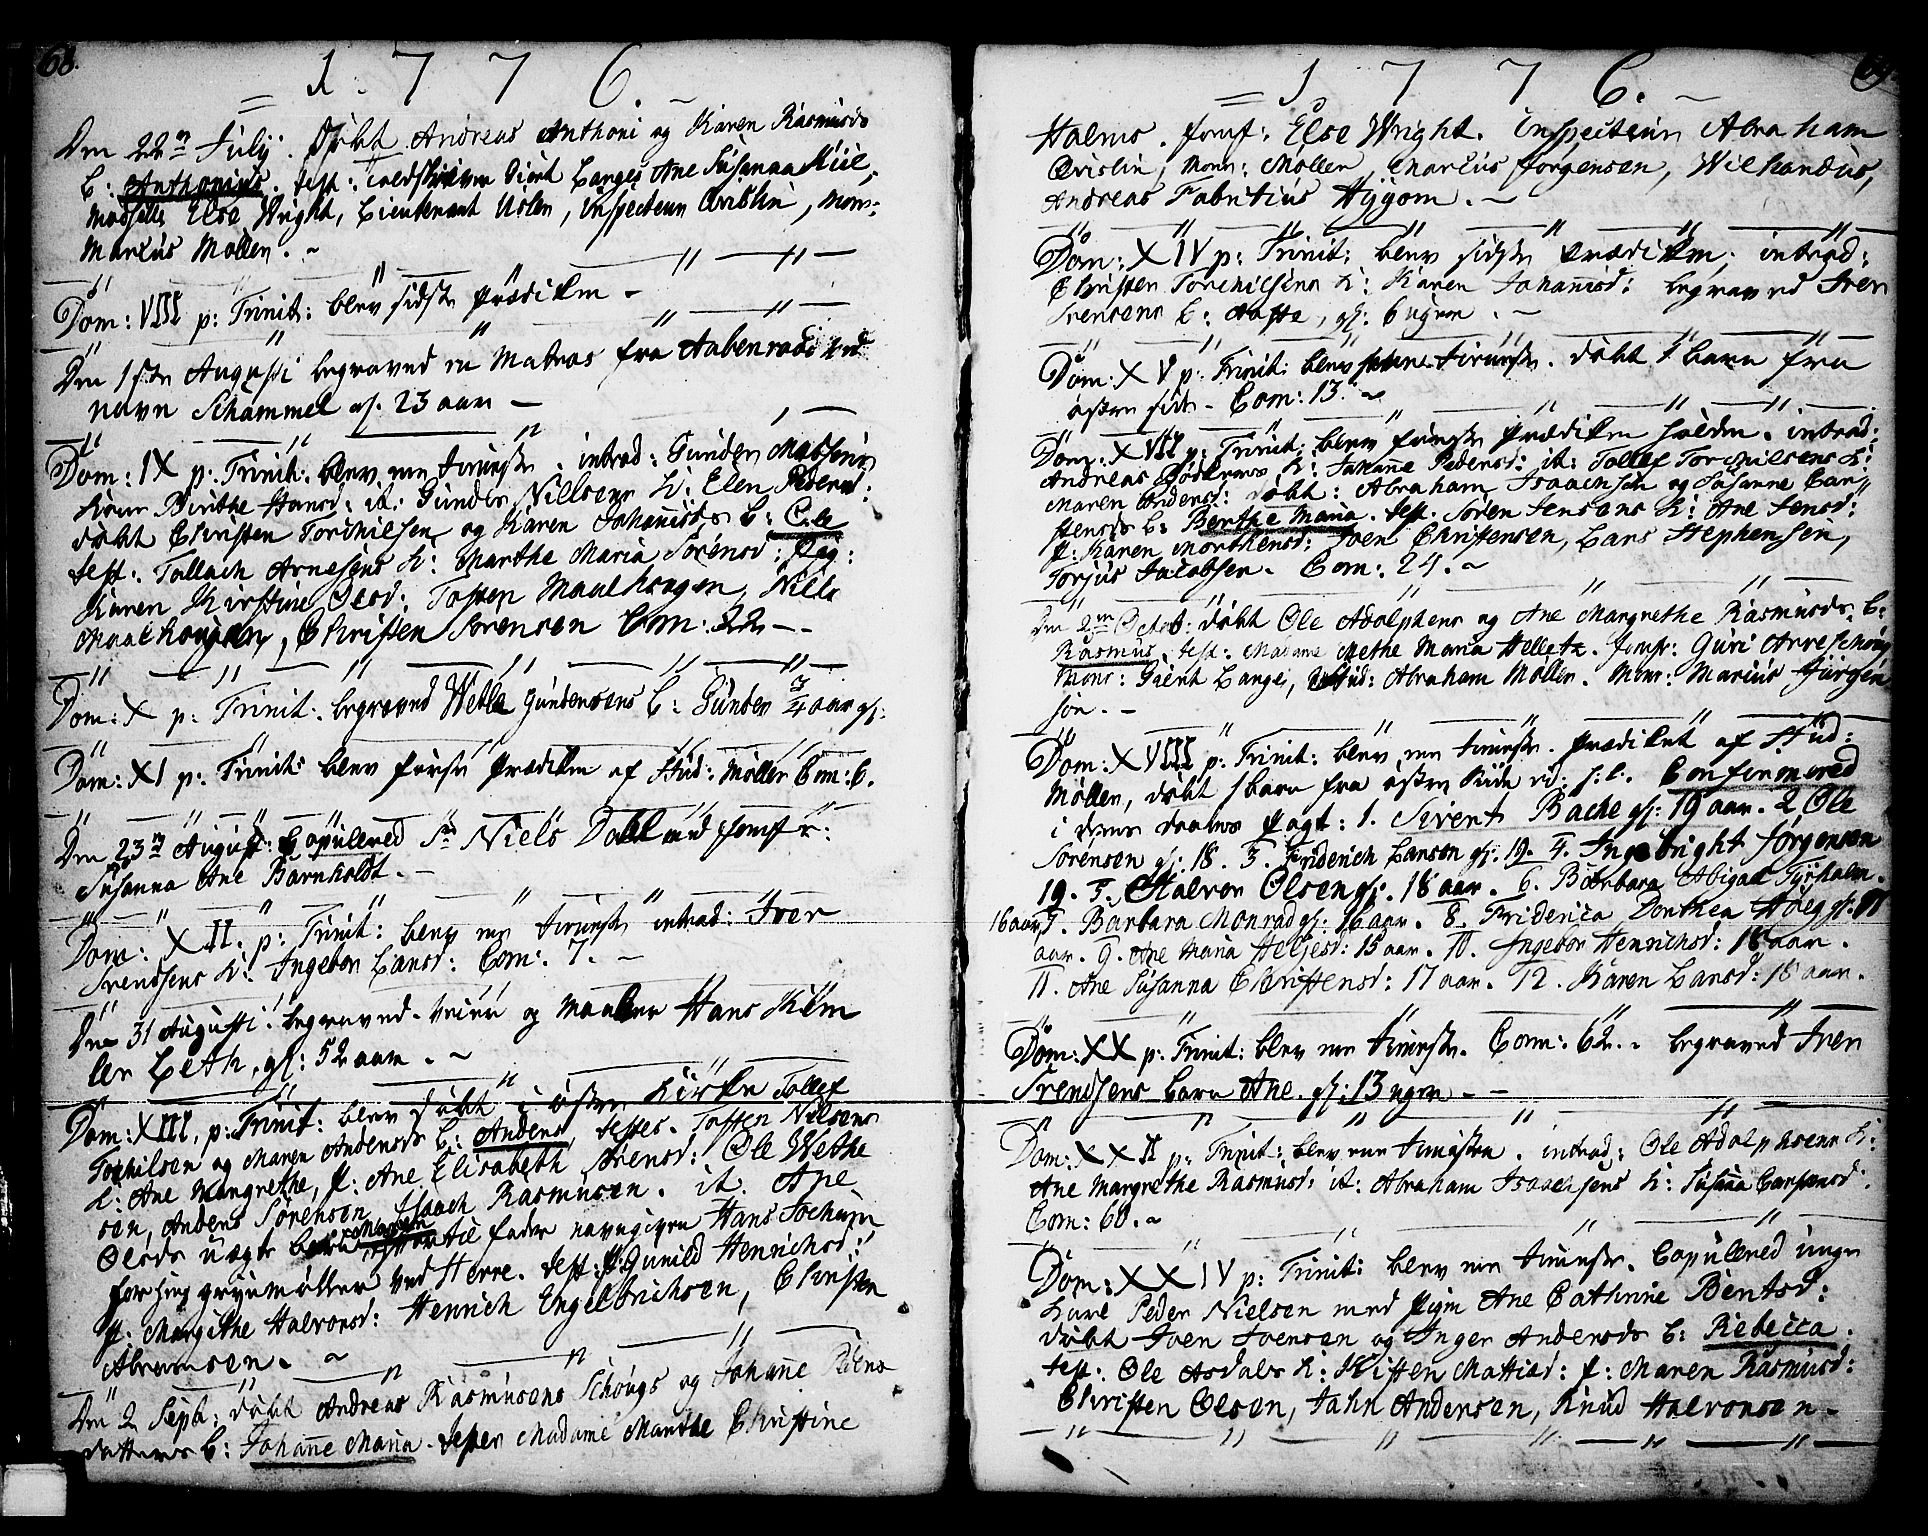 68.
1776.
Den 22n Julij. Døbt Andreas Anthoni og Karen Rasmusds
b: Anthonius. test: Giert Langes Ane Susanna Kiil,
Madselle Else Wright, Lieutenant Uslen, inspecteur Qvislin, Mons:
Marcus Møller.
Dom: VIII p: Trinit: blev sidste prædiken
Den 1ste Augusti begraved en Matros fra Aabenraade ved
navn Schammel gl. 23 aar
Dom: IX p: Trinit: blev tieniste. introd: Gunder Madsens
Kone Birithe Hansd: it: Gunder Nielsens K: Elen Peders:
døbt Christen Torchilsen og Karen Johannisds b: Ole
test: Tallach Arnesens K: Marthe Maria Sørensd: Pig:
Karen Kirstine Olsd: Tosten Maalhougen, Niels
Maalhougen, Christen Sørensen Com: 22
Dom: X p: Trinit: begraved Wetle Gundersens b: Gunder 3/4 aar gl:
Dom: XI p: Trinit: blev første prædiken af Stud: Møller Com: 6.
Den 23n August: Copulered Sr Niels Dahl med Jomfr:
Susanna Ane Barnholdt.
Dom: XII. p: Trinit: blev tieniste introd: Iver
Svendsens K: Ingebor Larsd: Com: 7.
Den 31 Augusti begraved og Maaler Hans Kiim
ler Leth, gl: 52 aar.
Dom: XIII. p: Trinit: blev døbt i østre Kirke Tollef
Torchilsen og Maren Andersds b: Anders, testes. Tosten Nielsens
K: Ane Margrethe, P: Ane Elisabeth Sørensd: Ole Wethe
sen, Anders Sørensen, Isaach Rasmusen. it. Ane
Olsds uægte barn Maren til fader navngiven Hans Jochum
ved Herre. test: P: Gunild Henrichsd:
P: Margithe Halvorsd: Henrich Engelbrichsen, Christen
Abramsen.
Den 2 Septb: døbt Andreas Rasmusens Schougs og Johanne Peders
datters b: Johanne Maria. testes Madame Marthe Christine
69.
1776.
Halms. Jomf: Else Wright. Inspecteur Abraham
Qvislin, Mons: Møller Marcus Jorgensen, Wilhardus,
Andreas Fabritius Hygom.
Dom: XIV p: Trinit: blev sidste prædiken; introd:
Christen Torchilsens K: Karen Johannisd: begraved Iver
Svensens b: Aasse, gl: 6 uger.
Dom: XV p: Trinit: blev tieniste. døbt 1 barn fra
østre side. Com: 13.
Dom: XVII p: Trinit: blev første prædiken holden. introd:
Andreas Bødkers K: Johanne Pedersd: it: Tollef Torchilsens K:
Maren Andersd: døbt: Abraham Isaachsen og Susanne Car
stensds b: Berthe Maria. test. Søren Jensens K: Ane Jensd:
P: Karen Morthensd: Iver Christensen, Lars Stephensen,
Torjus Jacobsen. Com: 24.
Den 2n Octob: døbt Ole Adolphens og Ane Margrethe Rasmusds b:
Rasmus, test: Madame Methe Maria Helletz. Jomfr: Guri Arreschoug
Mons: Gierit Lange, Stud: Abraham Møller. Mons: Marius Jurgen
sen.
Dom: XVIII p: Trinit: blev tieniste. prædiket af Stud:
Møller, døbt 1 barn fra østre side Confirmered
i deres daabes pagt: 1. Sivert Bache gl: 19 aar. 2 Ole
Sørensen gl: 18. 3. Friderich Larsen gl: 19. 4. Ingebright Jørgensen
19. 5. Halvor Olsen gl: 18 aar. 6. Barbara Abigael Tyrholm.
16 aar 7. Barbara Monrad gl: 16 aar. 8. Friderica Dorthea Høeg gl: 17
aar. 9. Ane Maria Heljesd: 15 aar. 10. Ingebor Henrichsd: 18 aar.
11. Ane Susanna Christensd: 17 aar. 12. Karen Larsd: 18 aar.
Dom: XX p: Trinit: blev tieniste. Com: 62. begraved Iver
Svendsens barn Ane. gl: 13 uger
Dom: XXII p: Trinit: blev tieniste. introd: Ole Adolphsens K:
Ane Margrethe Rasmusd: it: Abraham Isaachsens K: Susanna Carstensd:
Com: 60.
Dom: XXIV p: Trinit: blev tieniste. Copulered unge
Karl Peder Nielsen med Pigen Ane Cathrine Bentsd:
døbt Iver Iversen og Inger Andersds b: Rebecca.
test: Ole Asdals K: Kisten Mattisd: P: Maren Rasmusd:
Christen Olsen, Jahn Andersen, Knud Halvorsen